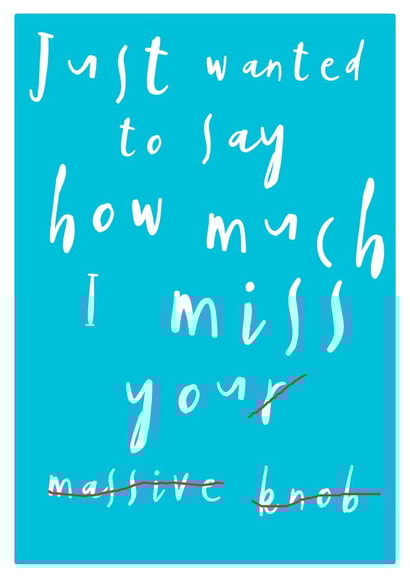 Just wanted
to say
how much
I miss
your
massive knob